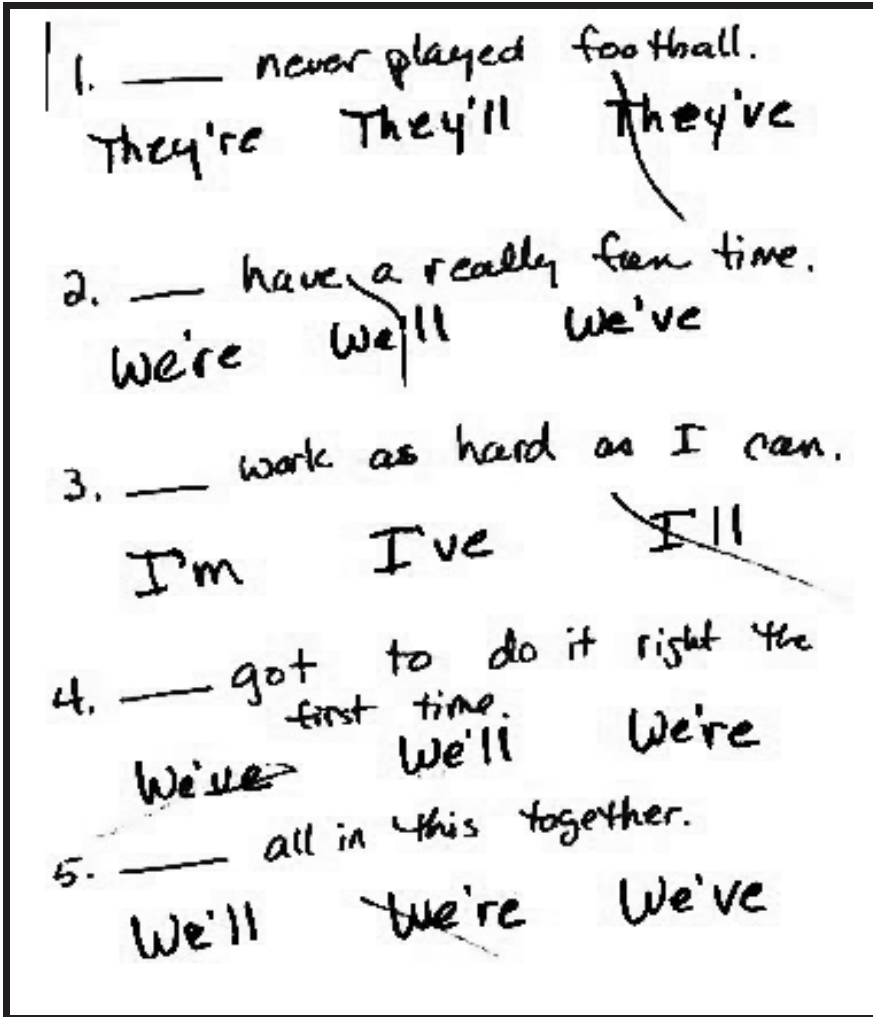 1. ____ never played football.
They're They'll They've
2. ____ have a really fun time.
We're We'll We've
3. ____ work as hard as I can.
I'm I've I'll
4. ____ got to do it right the
first time.
We've We'll We're
5. ____ all in this together.
We'll We're We've